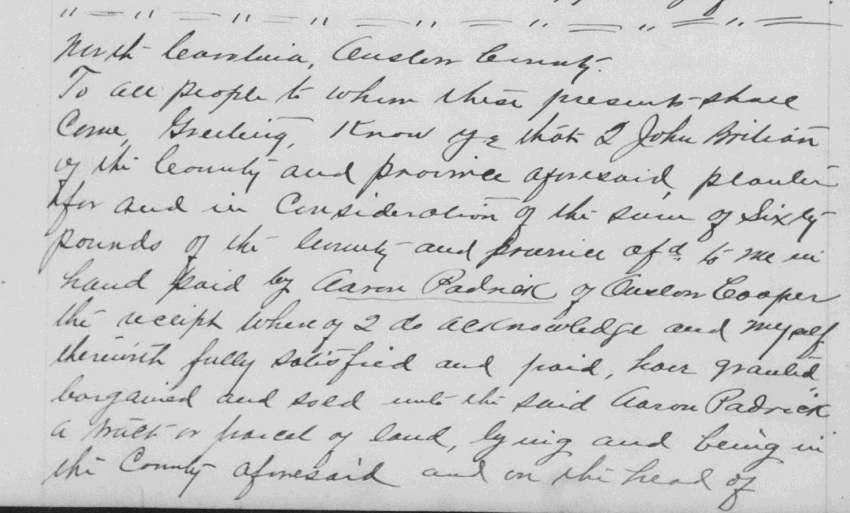 " = " = " = " = " = " = " = "
North Carolina, Onslow County.
To all people to whom these presents shall
Come, Greeting, Know ye that I John Brilian
of the County and province aforesaid, planter
for and in Consideration of the sum of Sixty
pounds of the County and province afd. to me in
hand paid by Aaron Padrick of Onslow Cooper
the receipt whereof I do acknowledge and myself
therewith fully satisfied and paid, have granted
bargained and sold unto the said Aaron Padrick
a tract or parcel of land, lying and being in
the County aforesaid and on the head of